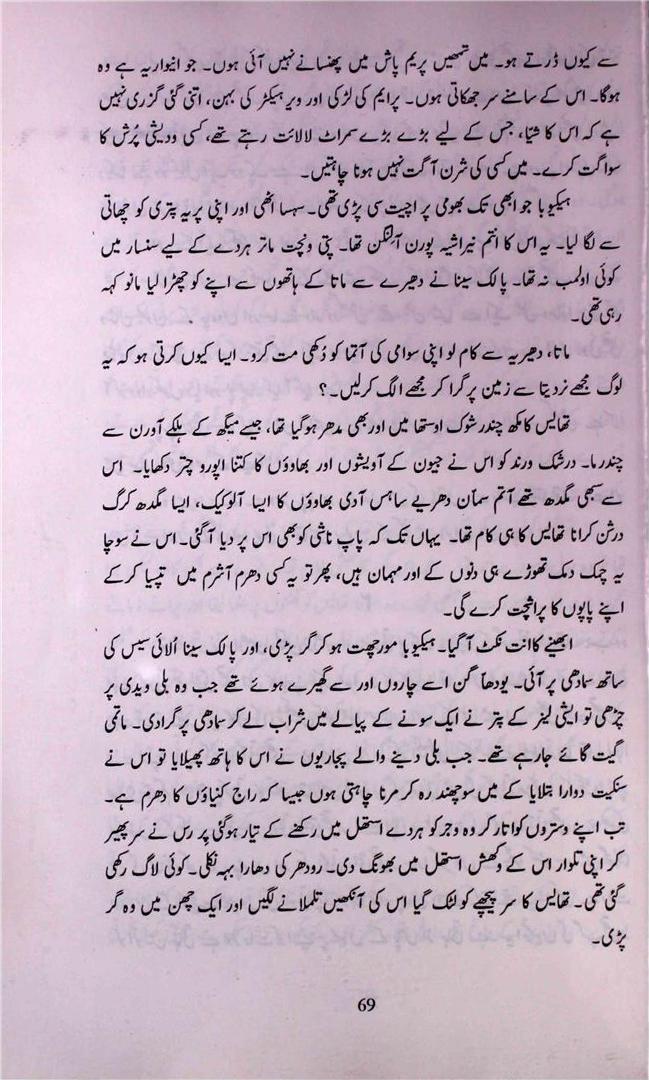 سے کیوں ڈرتے ہو۔ میں تمھیں پریم پاش میں پھنسانے نہیں آئی ہوں۔ جو انیواریہ ہے وہ
ہوگا۔ اس کے سامنے سر جھکاتی ہوں۔ پرایم کی لڑکی اور ویر ہیکٹر کی بہن، اتنی گئی گزری نہیں
ہے کہ اس کا شیّا، جس کے لیے بڑے بڑے سمراٹ لالائت رہتے تھے، کسی ودیشی پُرش کا
سواگت کرے۔ میں کسی کی شرن آگت نہیں ہونا چاہتیں۔
ہیکیوبا جو ابھی تک بھومی پر اچیت سی پڑی تھی۔ سہسا اٹھی اور اپنی پریہ پتری کو چھاتی
سے لگا لیا۔ یہ اس کا انتم نیراشیہ پورن آلنگن تھا۔ پتی ونچت ماتر ہردے کے لیے سنسار میں
کوئی اولمب نہ تھا۔ پالک سینا نے دھیرے سے ماتا کے ہاتھوں سے اپنے کو چھڑا لیا مانو کہہ
رہی تھی۔
ماتا، دھیریہ سے کام لو اپنی سوامی کی آتما کو دُکھی مت کرو۔ ایسا کیوں کرتی ہو کہ یہ
لوگ مجھے نردیتا سے زمین پر گرا کر مجھے الگ کرلیں۔؟
تھالیس کا مکھ چندر شوک اوستھا میں اور بھی مدھر ہوگیا تھا، جیسے میگھ کے ہلکے آورن سے
چندرما۔ درشک ورند کو اس نے جیون کے آویشوں اور بھاوؤں کا کتنا اپورو چتر دکھایا۔ اس
سے سبھی مگدھ تھے آتم سمّان دھریے ساہس آدی بھاوؤں کا ایسا آلوکیک، ایسا مگدھ کرگ
درشن کرانا تھالیس کا ہی کام تھا۔ یہاں تک کہ پاپ ناشی کو بھی اس پر دیا آگئی۔ اس نے سوچا
یہ چمک دمک تھوڑے ہی دنوں کے اور مہمان ہیں، پھر تو یہ کسی دھرم آشرم میں تپسیا کرکے
اپنے پاپوں کا پراشچت کرے گی۔
ابھینے کا انت نکٹ آگیا۔ ہیکیوبا مورچھت ہوکر گر پڑی، اور پالک سینا اُلائی سیس کی
ساتھ سمادھی پر آئی۔ یودھا گن اسے چاروں اور سے گھیرے ہوئے تھے جب وہ بلی ویدی پر
چڑھی تو ایشی لیئر کے پتر نے ایک سونے کے پیالے میں شراب لے کر سمادھی پر گرادی۔ ماتمی
گیت گائے جارہے تھے۔ جب بلی دینے والے پجاریوں نے اس کا ہاتھ پھیلایا تو اس نے
سنکیت دوارا بتلایا کے میں سوچھند رہ کر مرنا چاہتی ہوں جیسا کہ راج کنیاؤں کا دھرم ہے۔
تب اپنے وستروں کو اتار کر وہ وجر کو ہردے استھل میں رکھنے کے تیار ہوگئی پرس نے سر پھیر
کر اپنی تلوار اس کے وکھش استھل میں بھونگ دی۔ رودھر کی دھارا بہہ نکلی۔ کوئی لاگ رکھی
گئی تھی۔ تھالیس کا سر پیچھے کو لٹک گیا اس کی آنکھیں تلملانے لگیں اور ایک چھن میں وہ گر
پڑی۔
69